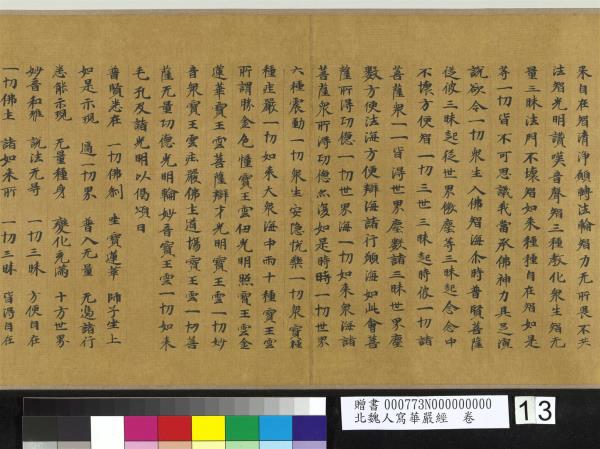 来自在智清淨願轉法輪智力无所畏不共
法智光明讃嘆音聲智三種教化衆生智无
量三昧法門不壞智如来種種自在智如是
等一切皆不可思議我當承佛神力具足演
說欲令一切衆生入佛智海尒時普賢菩薩
從彼三昧起從世界微塵等三昧起念念中
不壞方便智一切三世三昧起時彼一切諸
菩薩衆一一皆得世界塵數諸三昧世界塵
數方便法海方便辯海諸行願海如此會菩
薩所得功德一切世界海一切如来衆海諸
菩薩衆所得功德亦復如是時時一切世界
六種震動一切衆生安隱忱樂一切衆寶種
種庄嚴一切如来大衆海中雨十種寶王雲
所謂勝金色幢寶王雲佀光明照寶王雲金
蓮華寶王雲菩薩辯才光明寶王雲一切妙
音衆寶王雲庄嚴佛土道場寶王雲一切菩
薩无量功德光明輪妙音寶王雲一切如来
毛孔及諸光明以偈頌曰
普賢悉在 一切佛刹 坐寶蓮華 師子坐上
如是示現 遍一切界 普入无量 无邊諸行
悉能示現 无量種身 變化充滿 十方世界
妙音和雅 說法无㝵 一切三昧 方便自在
一切佛土 諸如来所 一切三昧 皆得自在
贈書 000773N000000000
北魏人寫華嚴經 卷
13